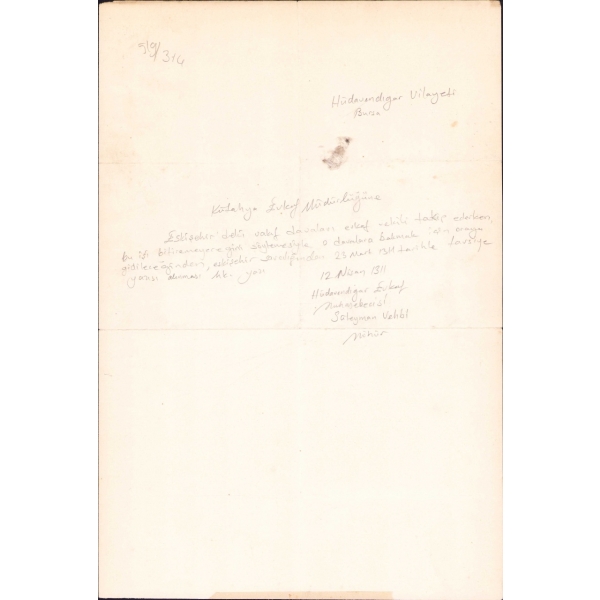 519/314
Hüdavendigar Vilayeti
Bursa
Kütahya Evkaf Müdürlüğüne
Eskişehir'deki vakıf davaları evkaf vekili takip ederken
bu işi bilmeyerek o davalara bakmak için oraya
gidileceğinden, eskişehir 23 Mart 1311 tarihle tavsiye
yazısı alınması hk. yazı
12 Nisan 1311
Hüdavendigar Evkaf
Muhasebecisi
Süleyman Vehbi
Mühür